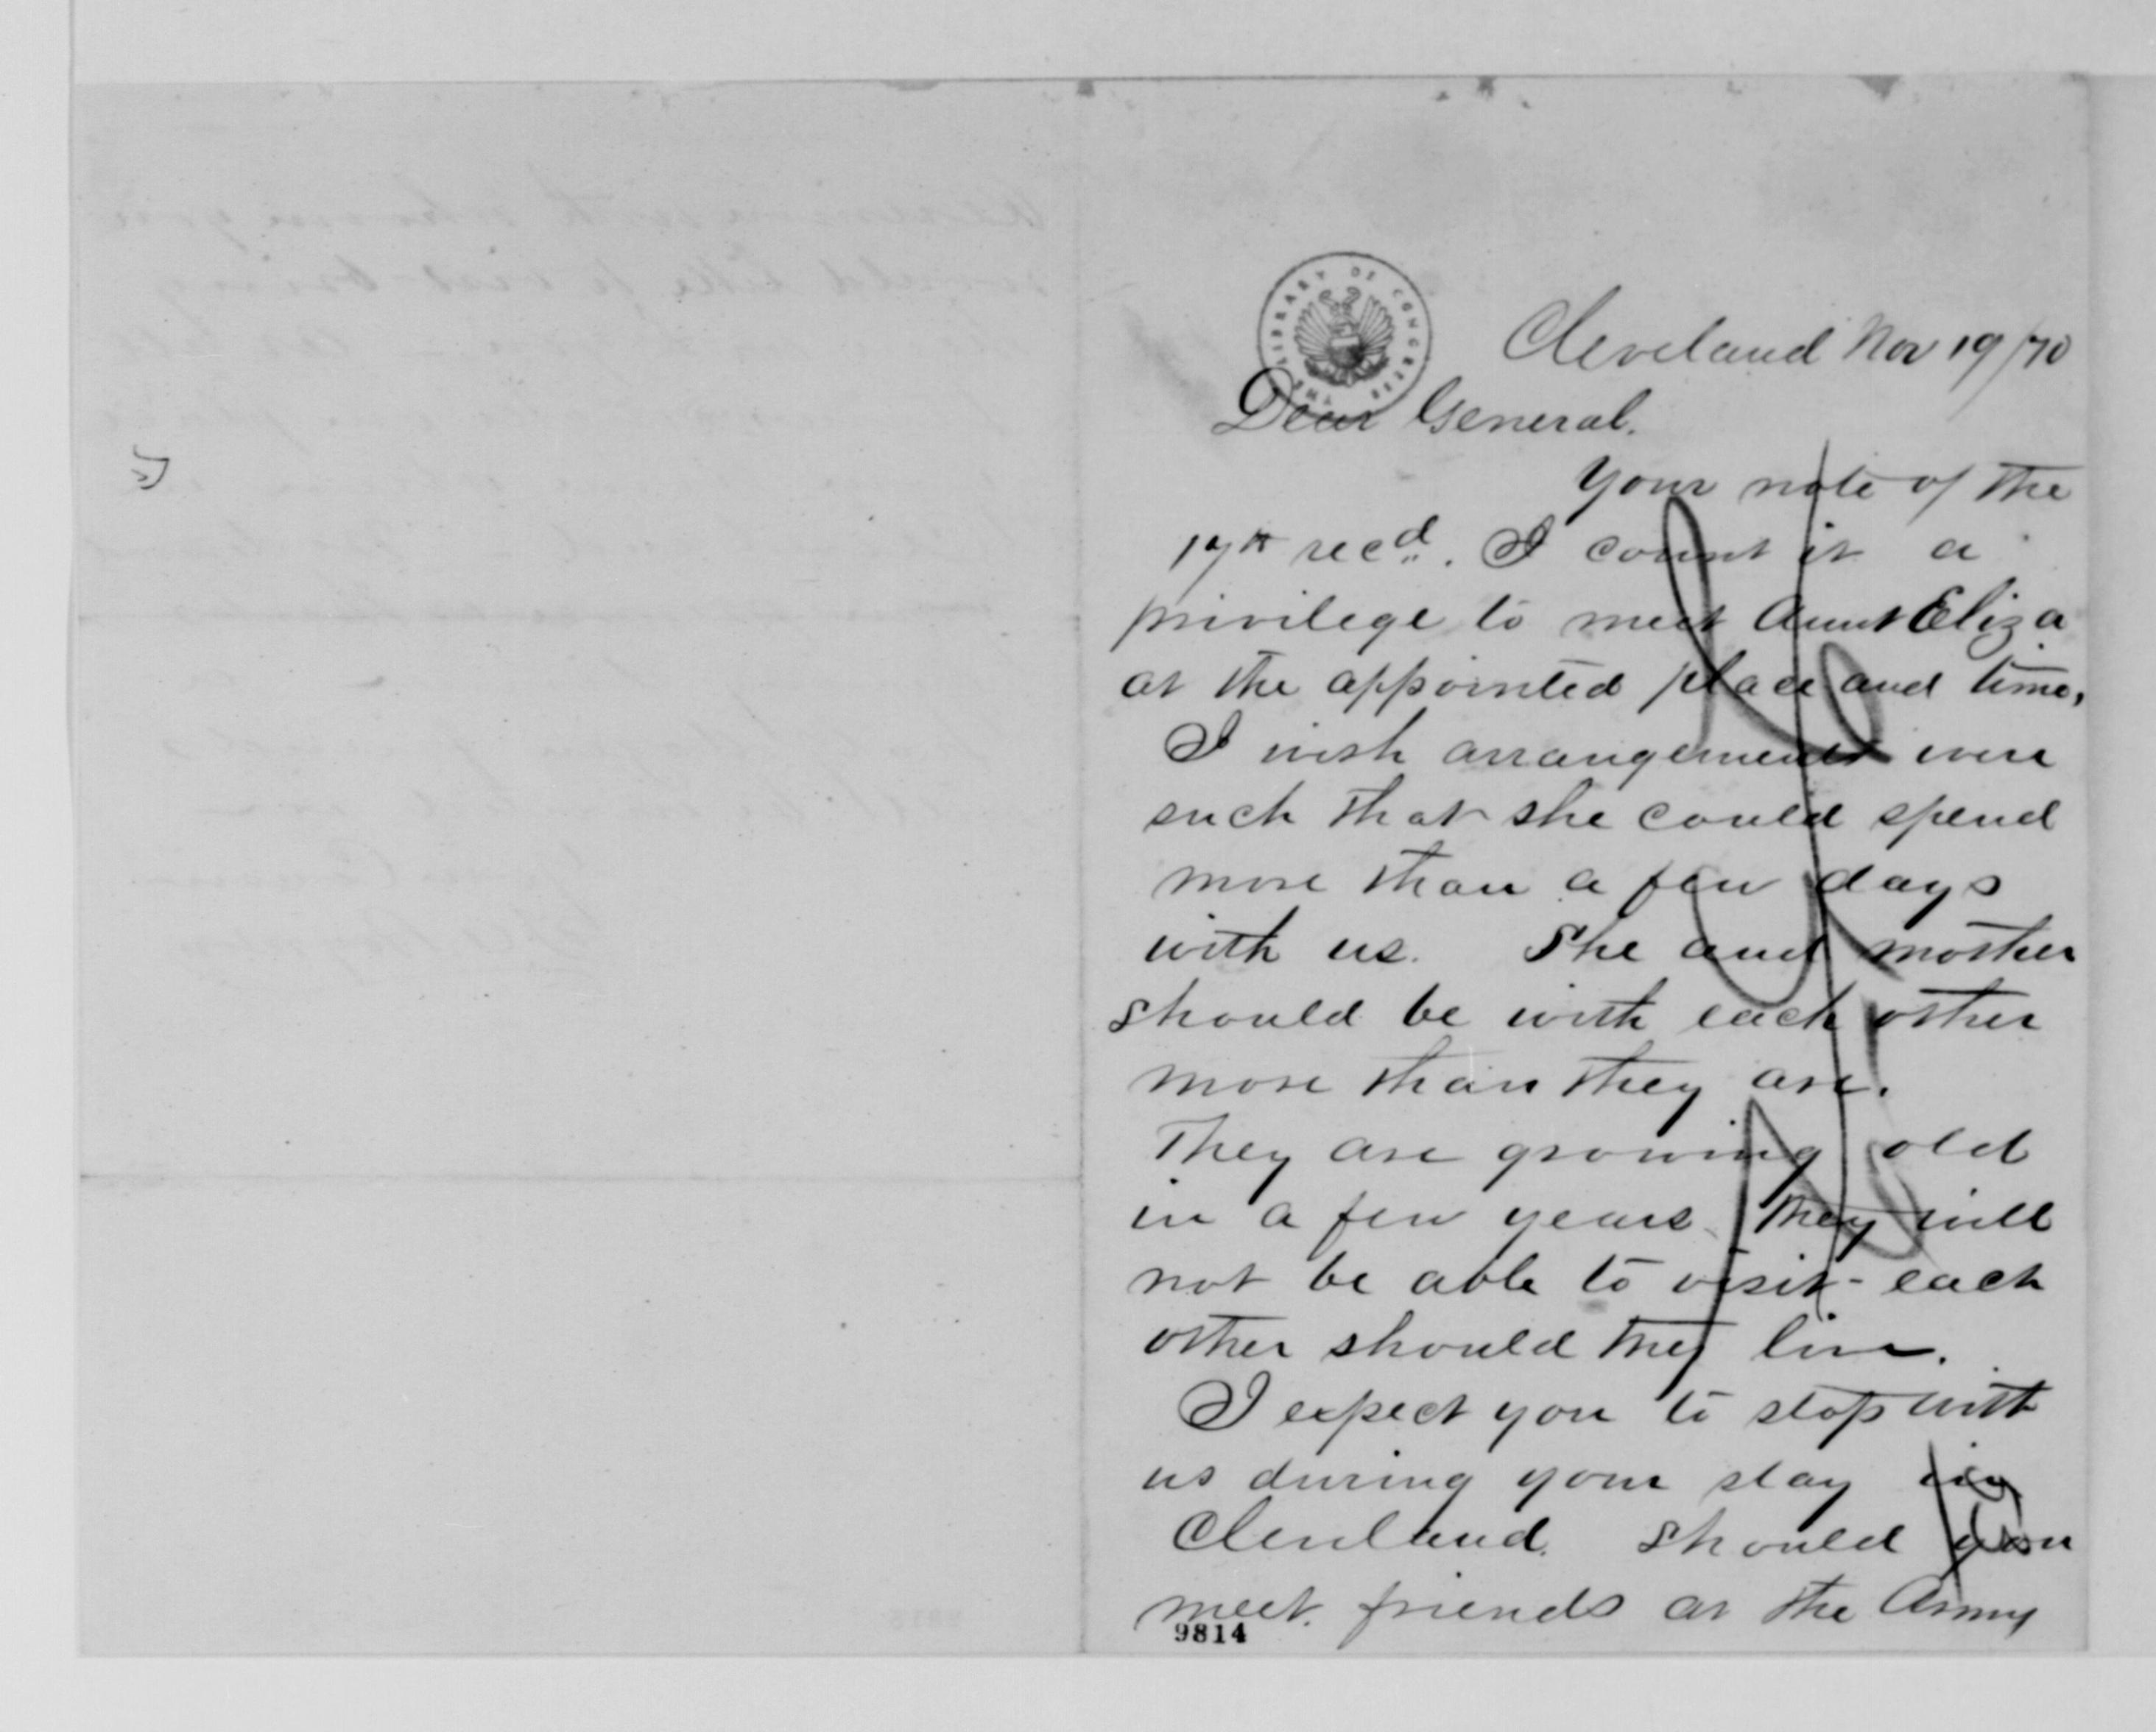 THE LIBRARY OF CONGRESS
Cleveland Nov 19/70
Dear General.
Your note of the
17th recd. I count it a
privilege to meet Aunt Eliza
at the appointed place and time.
I wish arrangements were
such that she could spend
more than a few days
with us. She and mother
should be with each other
more than they are.
They are growing old
in a few years they will
not be able to visit each
other should they live.
I expect you to stop with
us during your stay in
Cleveland. Should you
meet friends at the Army
9814